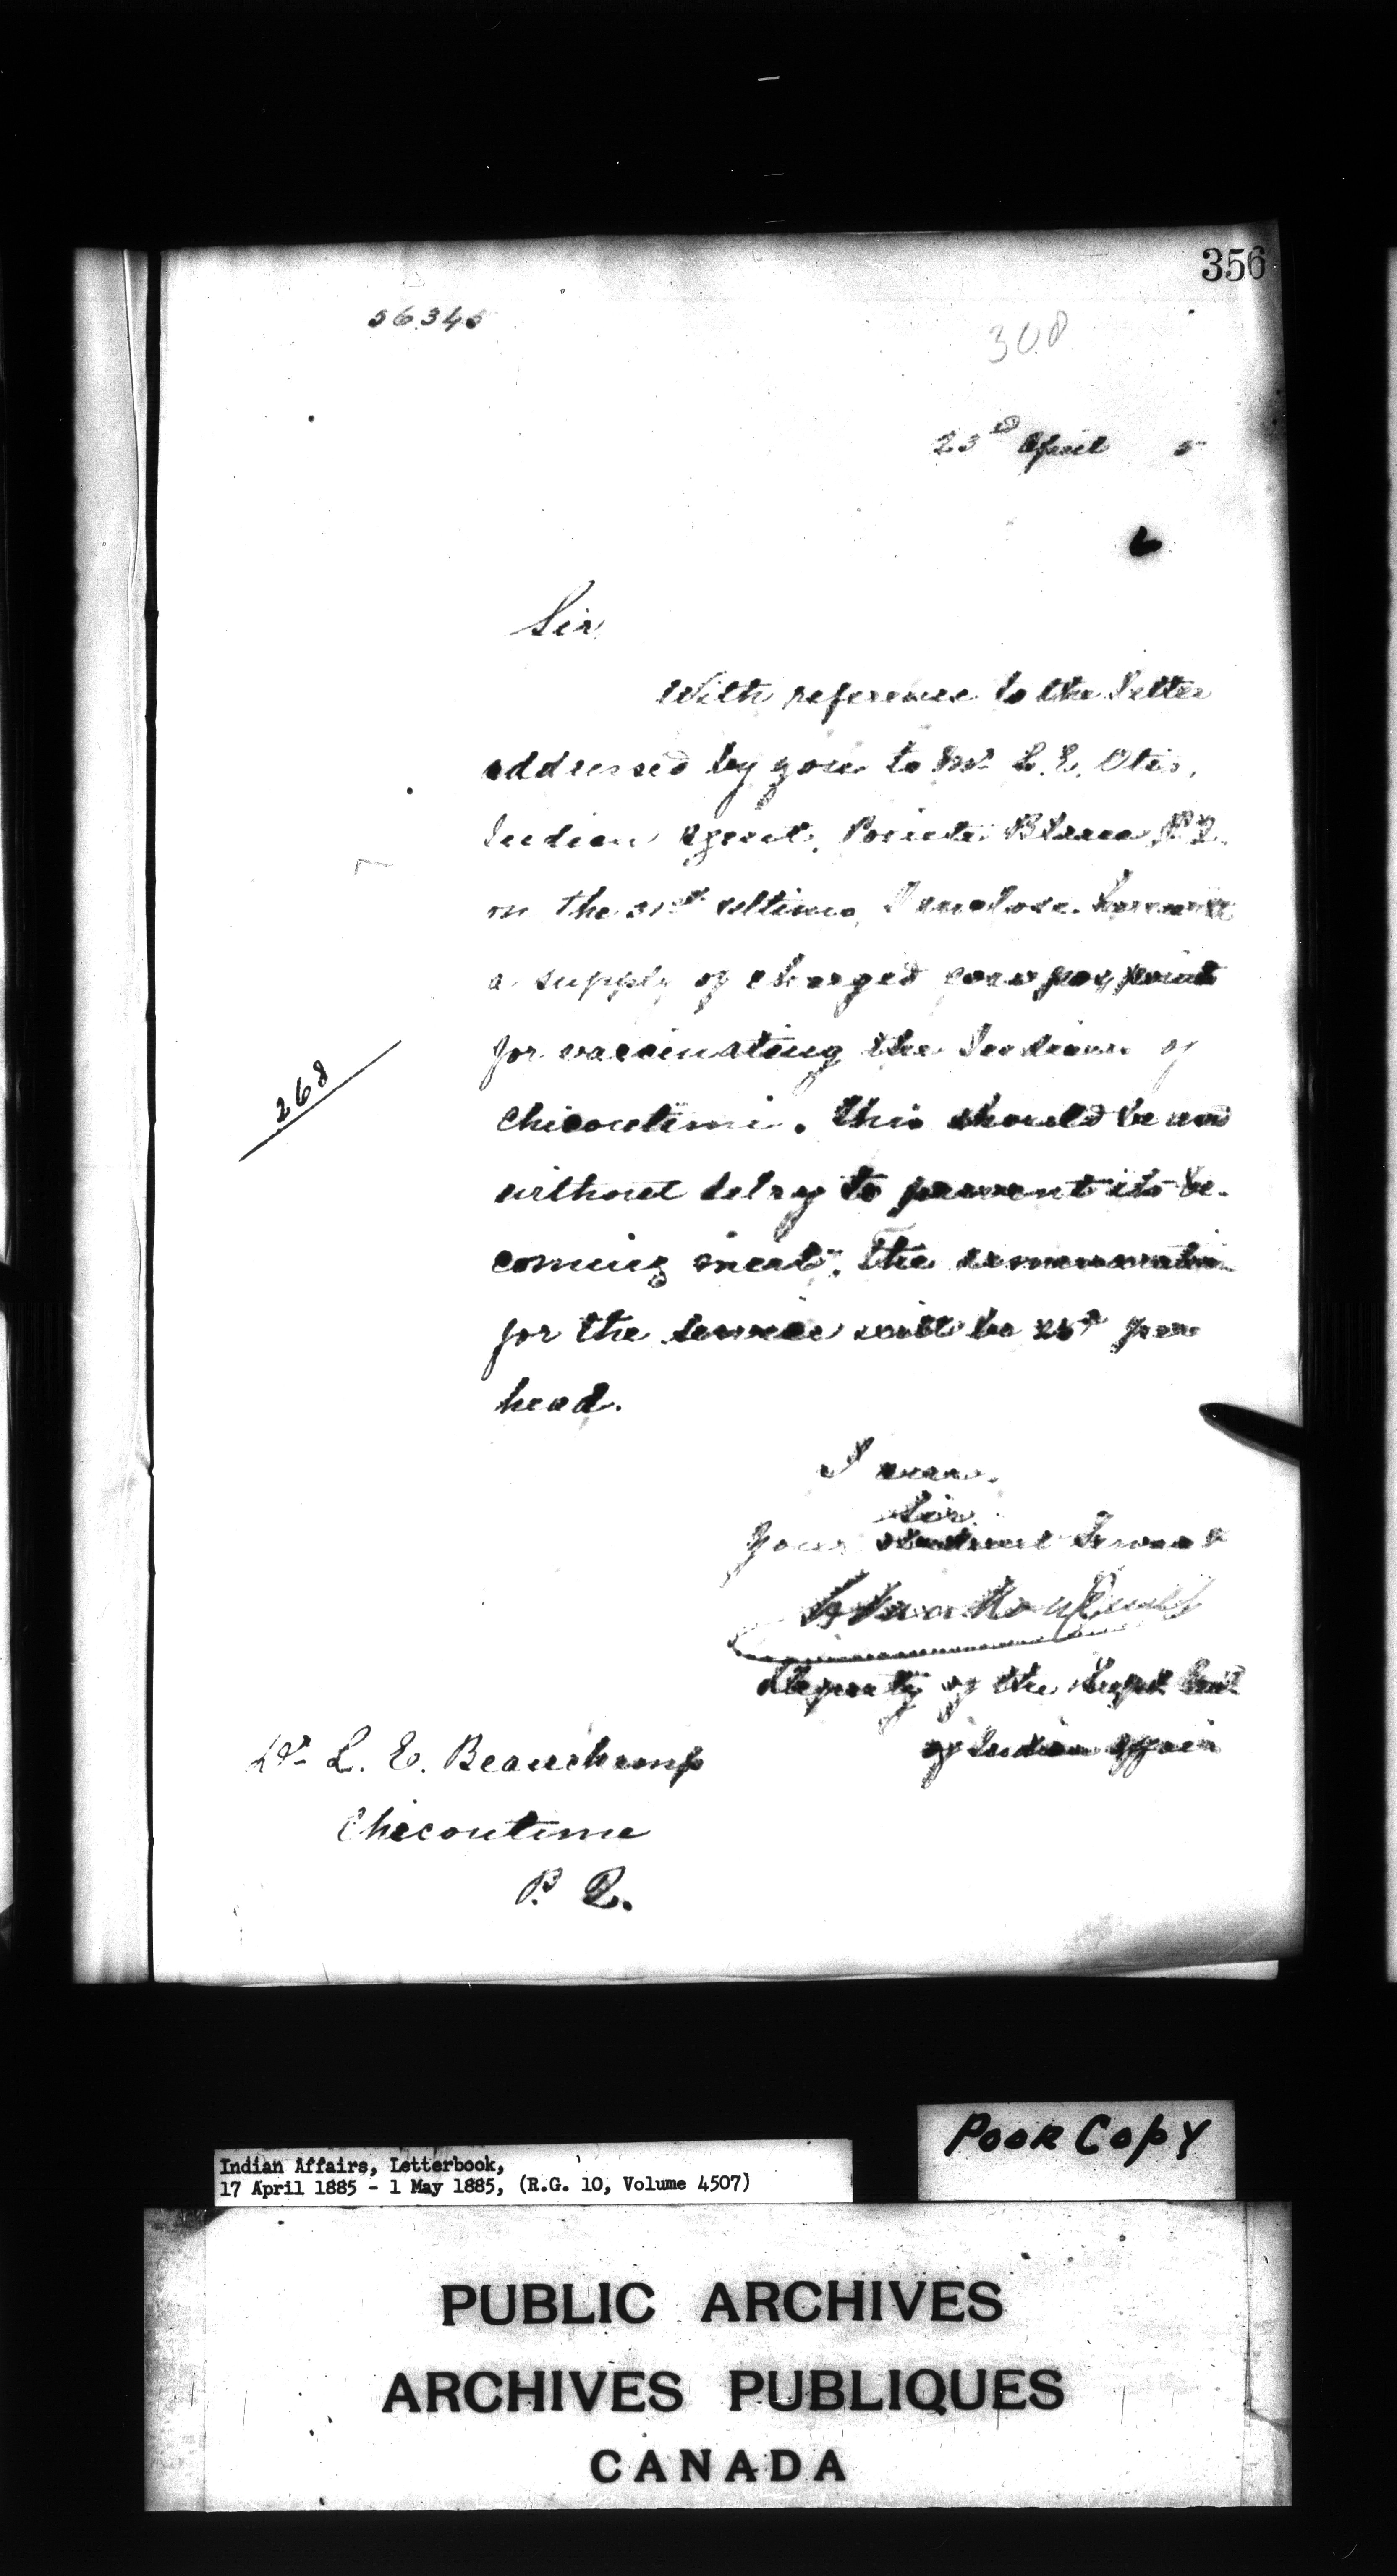 356
56345
308
23d April 5
Sir,
With reference to the letter
addressed by you to Mr L. E. Otis,
Indian Agent, Pointe Bleue P.Q.
on the 31st ultimo, I enclose herewith
a supply of charged cow pox points
for vaccinating the Indians of
Chicoutimi. This should be used
without delay to prevent its be-
coming inert. The remuneration
for the service will be 25¢ per
head.
268
I am,
Sir,
Your obedient Servant
L VanKoughnet
Deputy of the Supt Genl
of Indian Affairs
Dr L. E. Beauchamp
Chicoutimi
P. Q.
Poor Copy
Indian Affairs, Letterbook,
17 April 1885 - 1 May 1885, (R.G. 10, Volume 4507)
PUBLIC ARCHIVES
ARCHIVES PUBLIQUES
CANADA